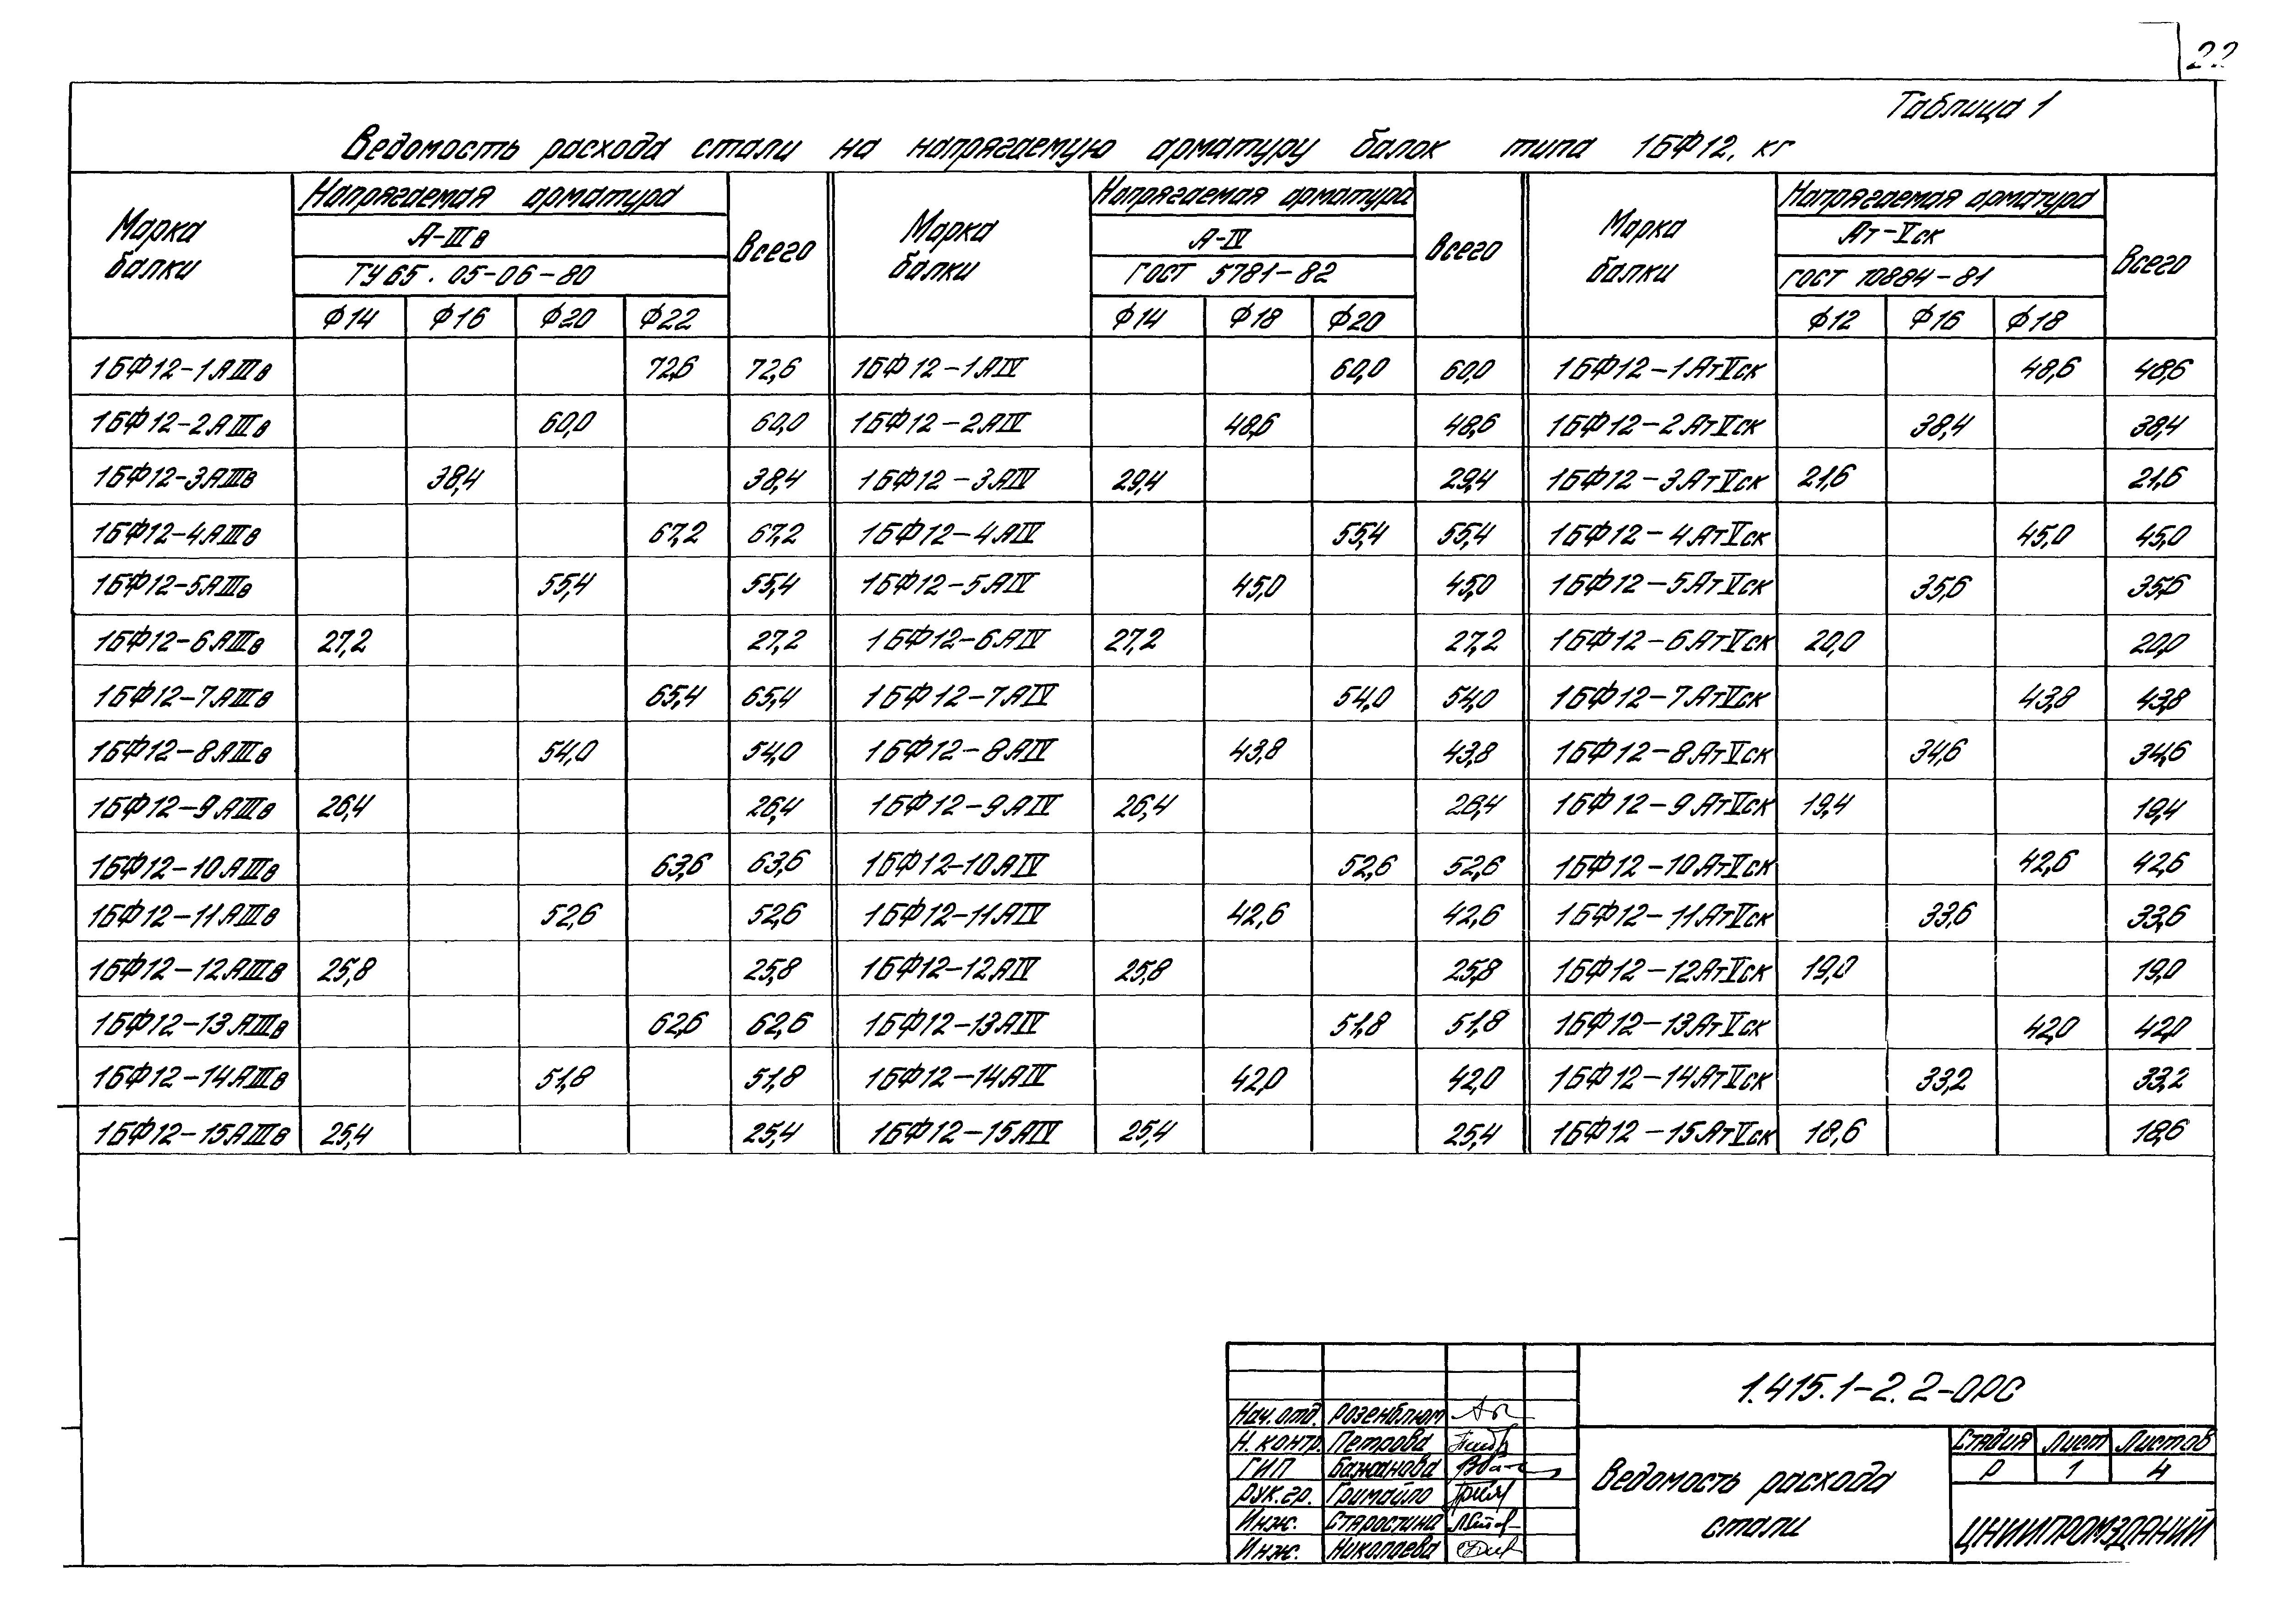 22
Таблица 1
Ведомость расхода стали на напрягаемую арматуру балок типа 1БФ12, кг
Марка балки | Напрягаемая арматура | Всего | Марка балки | Напрягаемая арматура | Всего | Марка балки | Напрягаемая арматура | Всего
А-IIIв | А-IV | Ат-Vск
ТУ65.05-06-80 | ГОСТ 5781-82 | ГОСТ 10884-81
Ф14 Ф16 Ф20 Ф22 | Ф14 Ф18 Ф20 | Ф12 Ф16 Ф18
1БФ12-1АIIIв 72,6 72,6 1БФ12-1АIV 60,0 60,0 1БФ12-1АтVск 48,6 48,6
1БФ12-2АIIIв 60,0 60,0 1БФ12-2АIV 48,6 48,6 1БФ12-2АтVск 38,4 38,4
1БФ12-3АIIIв 38,4 38,4 1БФ12-3АIV 29,4 29,4 1БФ12-3АтVск 21,6 21,6
1БФ12-4АIIIв 67,2 67,2 1БФ12-4АIV 55,4 55,4 1БФ12-4АтVск 45,0 45,0
1БФ12-5АIIIв 55,4 55,4 1БФ12-5АIV 45,0 45,0 1БФ12-5АтVск 35,6 35,6
1БФ12-6АIIIв 27,2 27,2 1БФ12-6АIV 27,2 27,2 1БФ12-6АтVск 20,0 20,0
1БФ12-7АIIIв 65,4 65,4 1БФ12-7АIV 54,0 54,0 1БФ12-7АтVск 43,8 43,8
1БФ12-8АIIIв 54,0 54,0 1БФ12-8АIV 43,8 43,8 1БФ12-8АтVск 34,6 34,6
1БФ12-9АIIIв 26,4 26,4 1БФ12-9АIV 26,4 26,4 1БФ12-9АтVск 19,4 19,4
1БФ12-10АIIIв 63,6 63,6 1БФ12-10АIV 52,6 52,6 1БФ12-10АтVск 42,6 42,6
1БФ12-11АIIIв 52,6 52,6 1БФ12-11АIV 42,6 42,6 1БФ12-11АтVск 33,6 33,6
1БФ12-12АIIIв 25,8 25,8 1БФ12-12АIV 25,8 25,8 1БФ12-12АтVск 19,0 19,0
1БФ12-13АIIIв 62,6 62,6 1БФ12-13АIV 51,8 51,8 1БФ12-13АтVск 42,0 42,0
1БФ12-14АIIIв 51,8 51,8 1БФ12-14АIV 42,0 42,0 1БФ12-14АтVск 33,2 33,2
1БФ12-15АIIIв 25,4 25,4 1БФ12-15АIV 25,4 25,4 1БФ12-15АтVск 18,6 18,6
1.415.1-2.2-ОРС
Нач.отд. Розенблюм
Н.контр. Петрова
ГИП Бажанова
Рук.гр. Гримайло
Инж. Старостина
Инж. Николаева
Ведомость расхода
стали
Стадия Лист Листов
Р 1 4
ЦНИИПРОМЗДАНИЙ